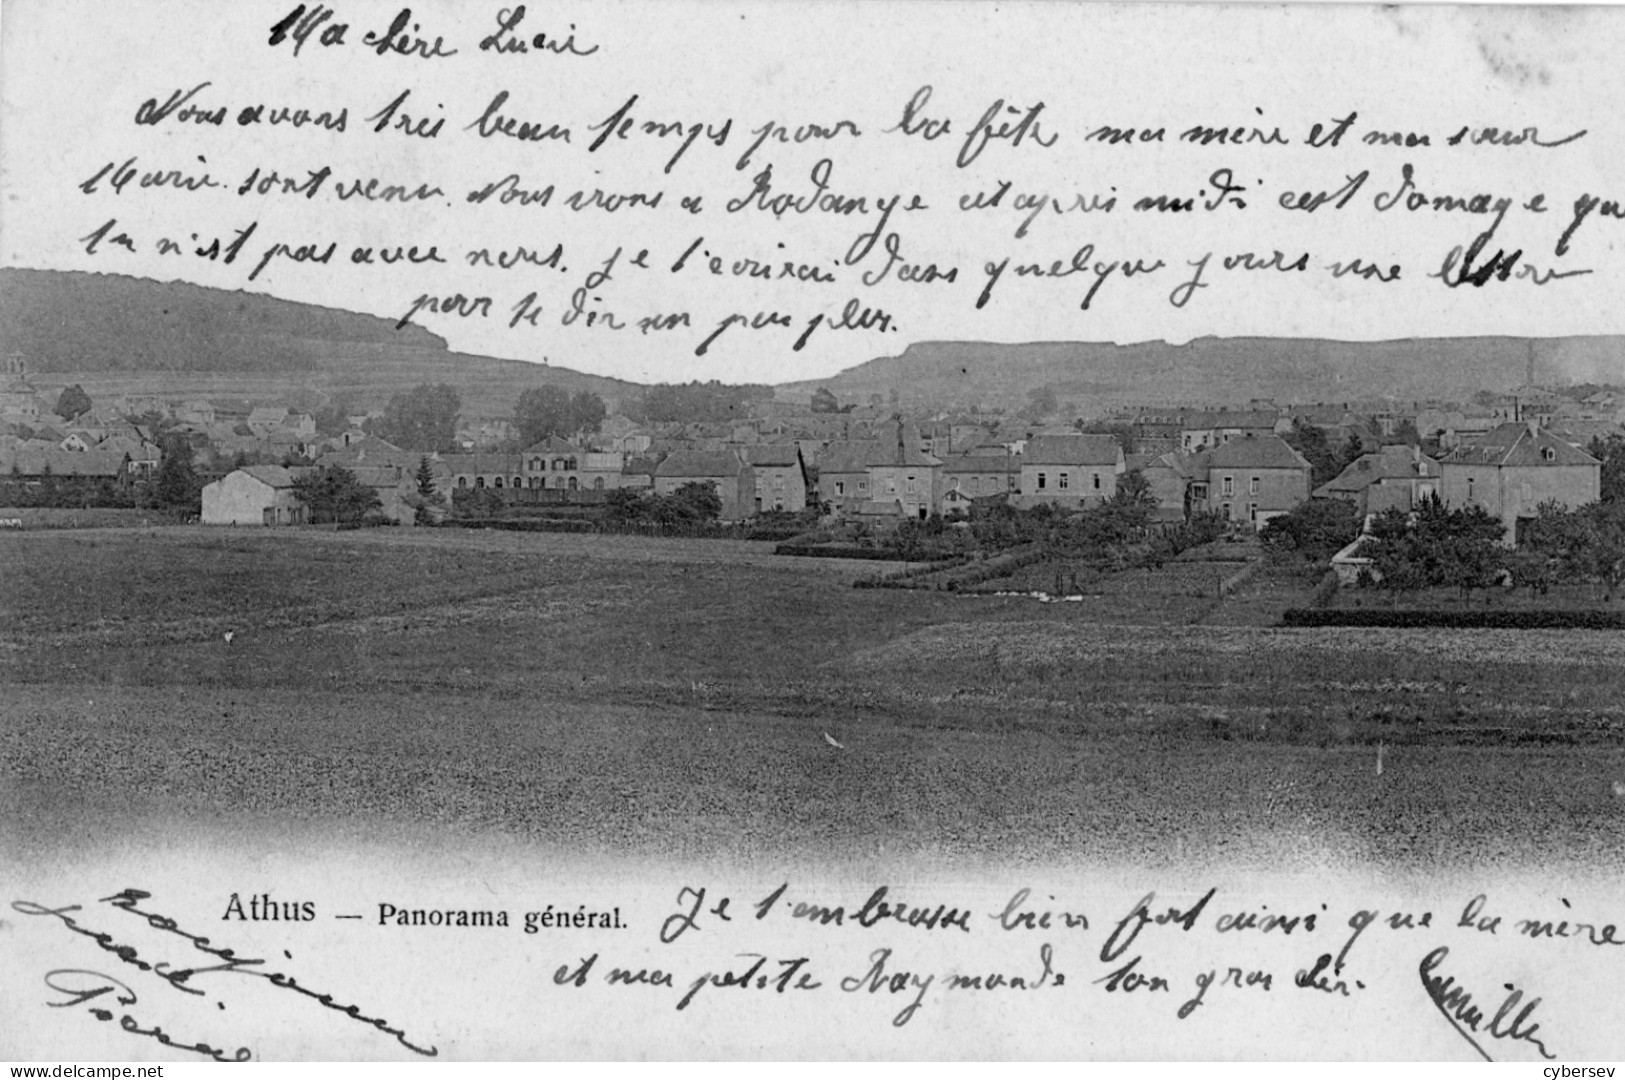 Ma chère Lucie
Nous avons très beau temps pour la fête ma mère et ma sœur
Marie. sont venu. Nous irons a Rodange cet après midi cest domage que
tu n'est pas avec nous. je t'ecrirai dans quelque jours une lettre
pour te dir un peu plus.
Athus — Panorama général.
Je t'embrasse bien fort ainsi que ta mère
et ma petite Raymonde ton gros chér.
Camille
bonjour
cybersev